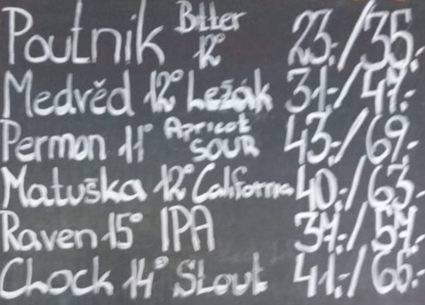 Poutník Bitter 12° 23,-/35,-
Medvěd 12° Ležák 31,-/47,-
Permon 11° Apricot SOUR 43,-/69,-
Matuška 12° California 40,-/63,-
Raven 15° IPA 37,-/57,-
Chock 14° Stout 41,-/65,-